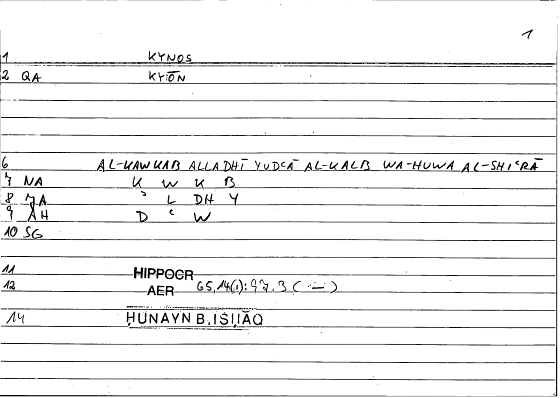 1
1 KYNOS
2 QA KYŌN
6 AL-KAWKAB ALLADHĪ YUDʿĀ AL-KALB WA-HUWA AL-SHIʿRĀ
7 NA K W K B
8 JA ʾ L DH Y
9 AH D ʿ W
10 SG
11 HIPPOCR
12 AER 65,14(1):97,3 (–)
14 ḤUNAYN B.ISḤĀQ